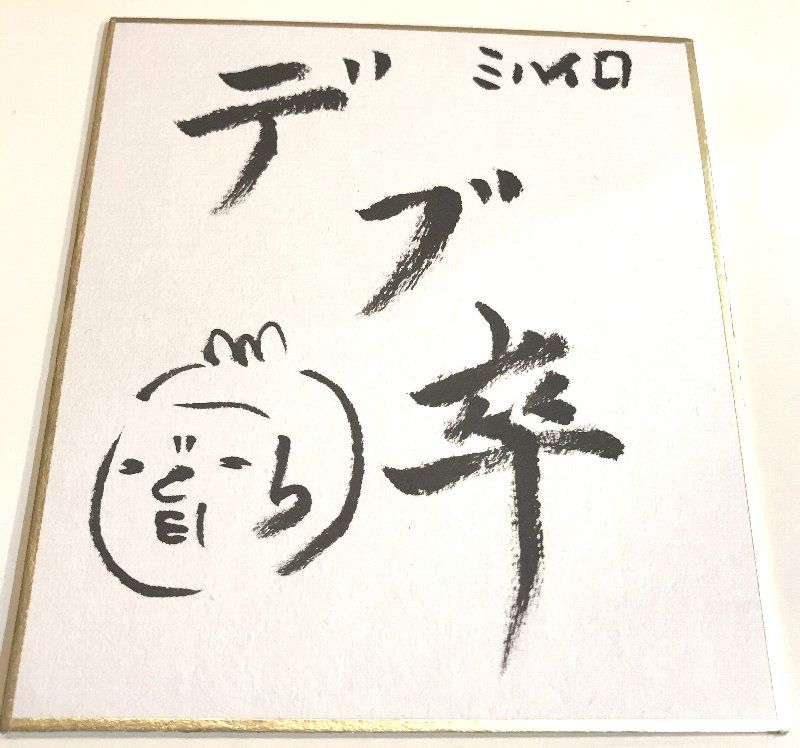 ミハイロ
デブ卒